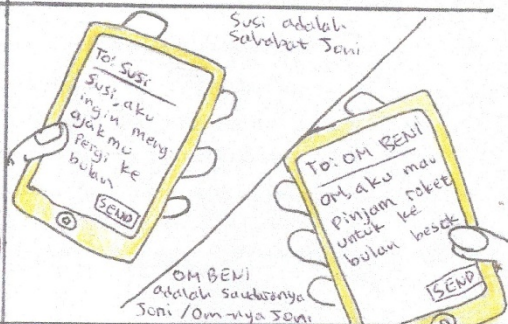 Susi adalah
Sahabat Joni
To: Susi
Susi, aku
ingin meng
ajakmu
pergi ke
bulan
SEND
To: OM BENI
OM, aku mau
pinjam roket
untuk ke
bulan besok
SEND
OM BENI
adalah saudaranya
Joni / Om-nya Joni